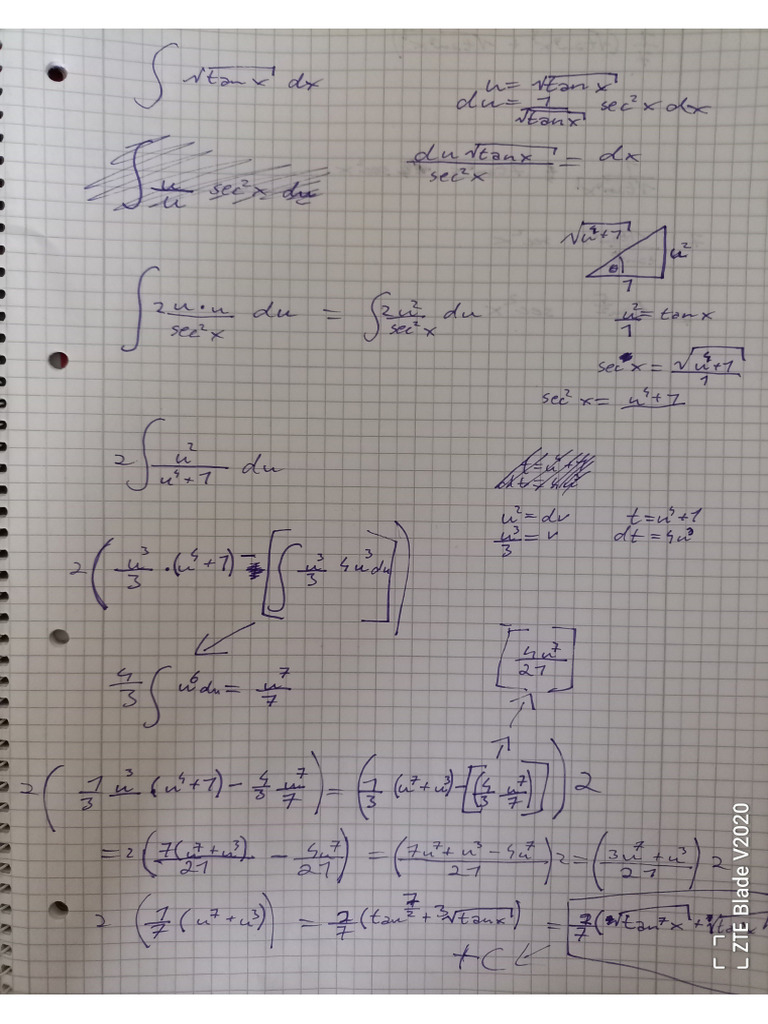 ∫ √tan x dx
u = √tan x
du = 1/√tan x sec²x dx
du √tan x / sec²x = dx
√u⁴+1
u²
θ
1
u²/1 = tan x
∫ 2u·u / sec²x du = ∫ 2u² / sec²x du
sec x = √u⁴+1 / 1
sec²x = u⁴+1
2 ∫ u² / u⁴+1 du
u² = dv t = u⁴+1
u³/3 = v dt = 4u³
2 ( u³/3 · (u⁴+1) - [ ∫ u³/3 4u³ du ] )
[ 4u⁷/21 ]
4/3 ∫ u⁶ du = u⁷/7
2 ( 1/3 u³ (u⁴+1) - 4/3 u⁷/7 ) = ( 1/3 (u⁷+u³) - [ ( 4/3 u⁷/7 ) ] ) 2
= 2 ( 7(u⁷+u³)/21 - 4u⁷/21 ) = ( 7u⁷+u³-4u⁷ / 21 ) 2 = ( 3u⁷+u³ / 21 ) 2
2 ( 1/7 (u⁷+u³) ) = 2/7 ( tan^7/2 + ³√tan x ) = 2/7 ( √tan⁷x +
+ C
ZTE Blade V2020